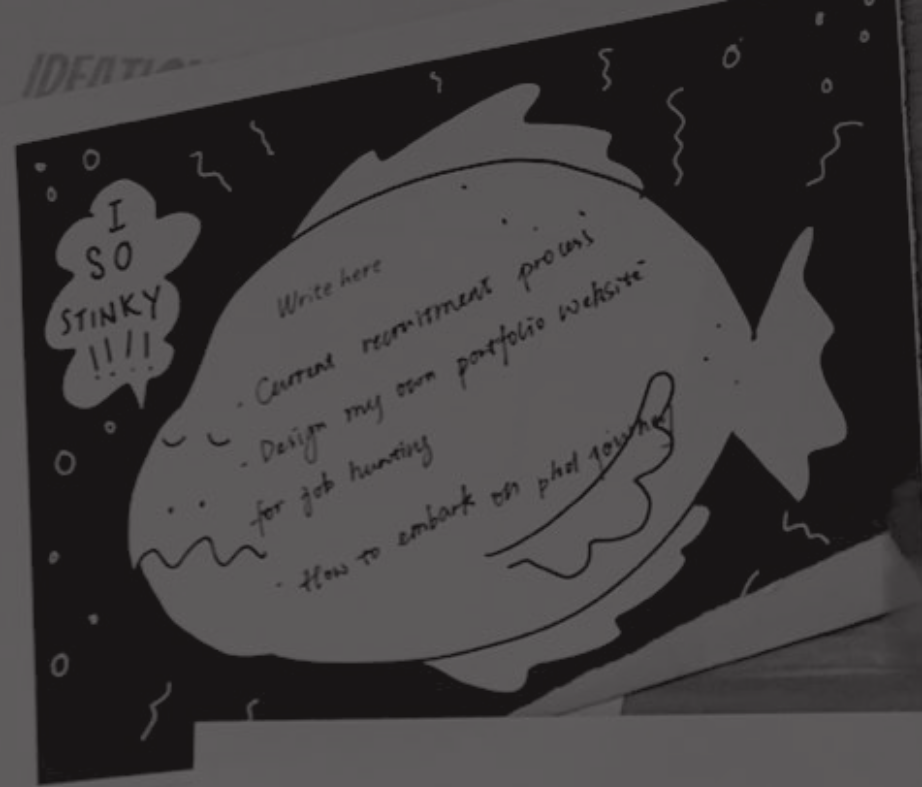 IDEATION
I
SO
STINKY
!!!!
Write here
- Current recruitment process
- Design my own portfolio website
for job hunting
- How to embark on phd journey